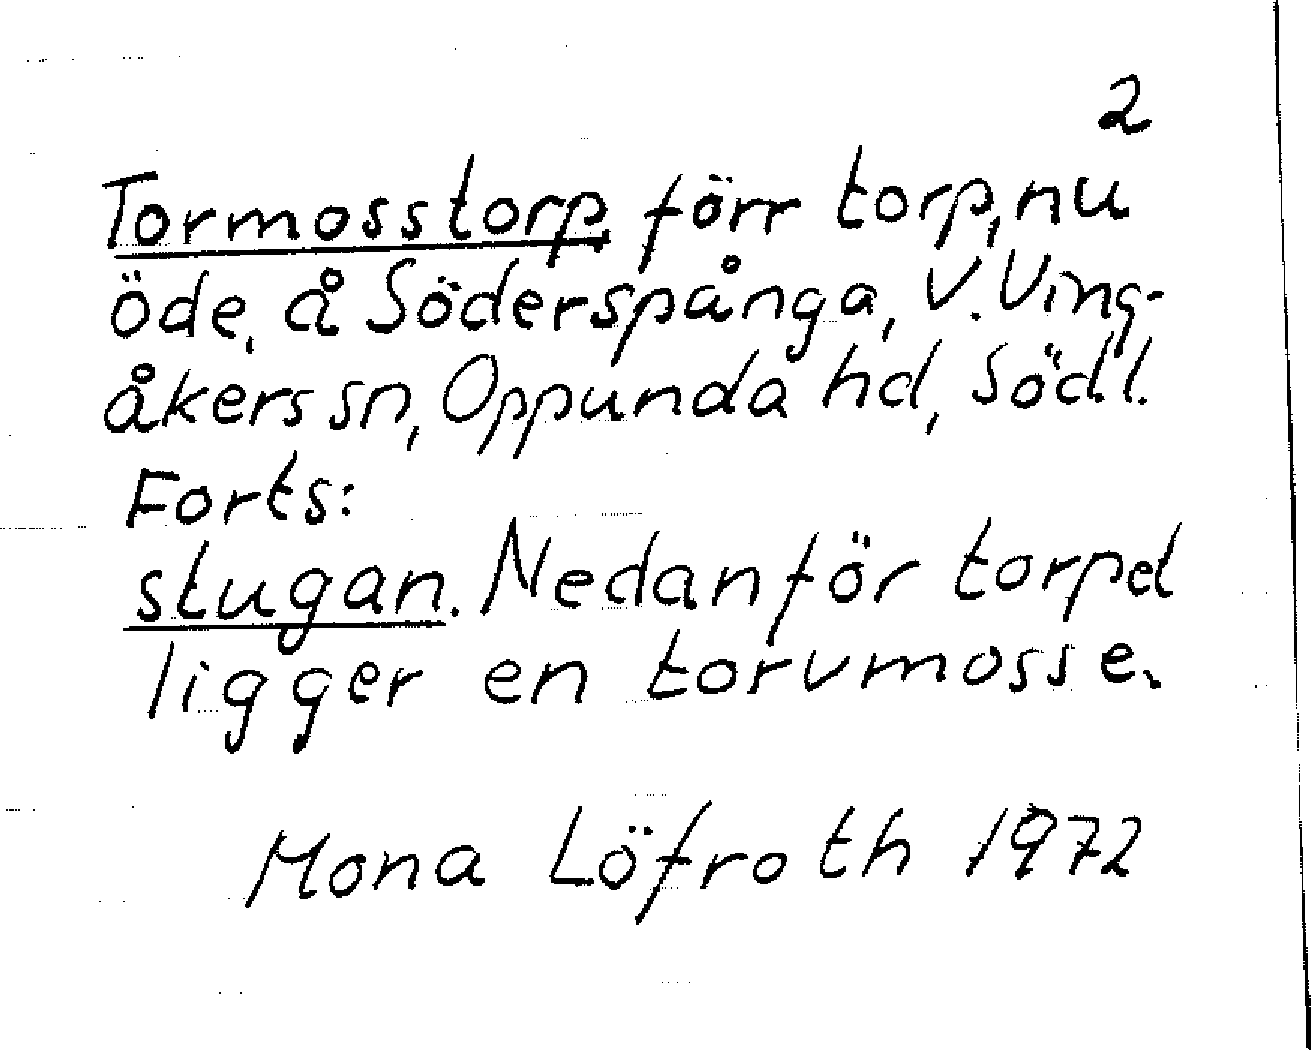 2
Tormosstorp, förr torp, nu
öde, å Söderspånga, V. Ving-
åkers sn, Oppunda hd, Södl.
Forts:
stugan. Nedanför torpet
ligger en torvmosse.
Mona Löfroth 1972